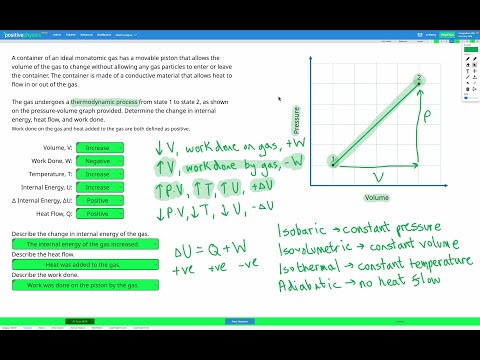 positivephysics
A container of an ideal monatomic gas has a movable piston that allows the
volume of the gas to change without allowing any gas particles to enter or leave
the container. The container is made of a conductive material that allows heat to
flow in or out of the gas.
The gas undergoes a thermodynamic process from state 1 to state 2, as shown
on the pressure-volume graph provided. Determine the change in internal
energy, heat flow, and work done.
Work done on the gas and heat added to the gas are both defined as positive.
Volume, V: Increase
Work Done, W: Negative
Temperature, T: Increase
Internal Energy, U: Increase
Δ Internal Energy, ΔU: Positive
Heat Flow, Q: Positive
Describe the change in internal energy of the gas.
The internal energy of the gas increased.
Describe the heat flow.
Heat was added to the gas.
Describe the work done.
Work was done on the piston by the gas.
↓V, work done on gas, +W
↑V, work done by gas, -W
↑P·V, ↑T, ↑U, +ΔU
↓P·V, ↓T, ↓U, -ΔU
ΔU = Q + W
+ve +ve -ve
Pressure
1
2
P
V
Volume
Isobaric → constant pressure
Isovolumetric → constant volume
Isothermal → constant temperature
Adiabatic → no heat flow